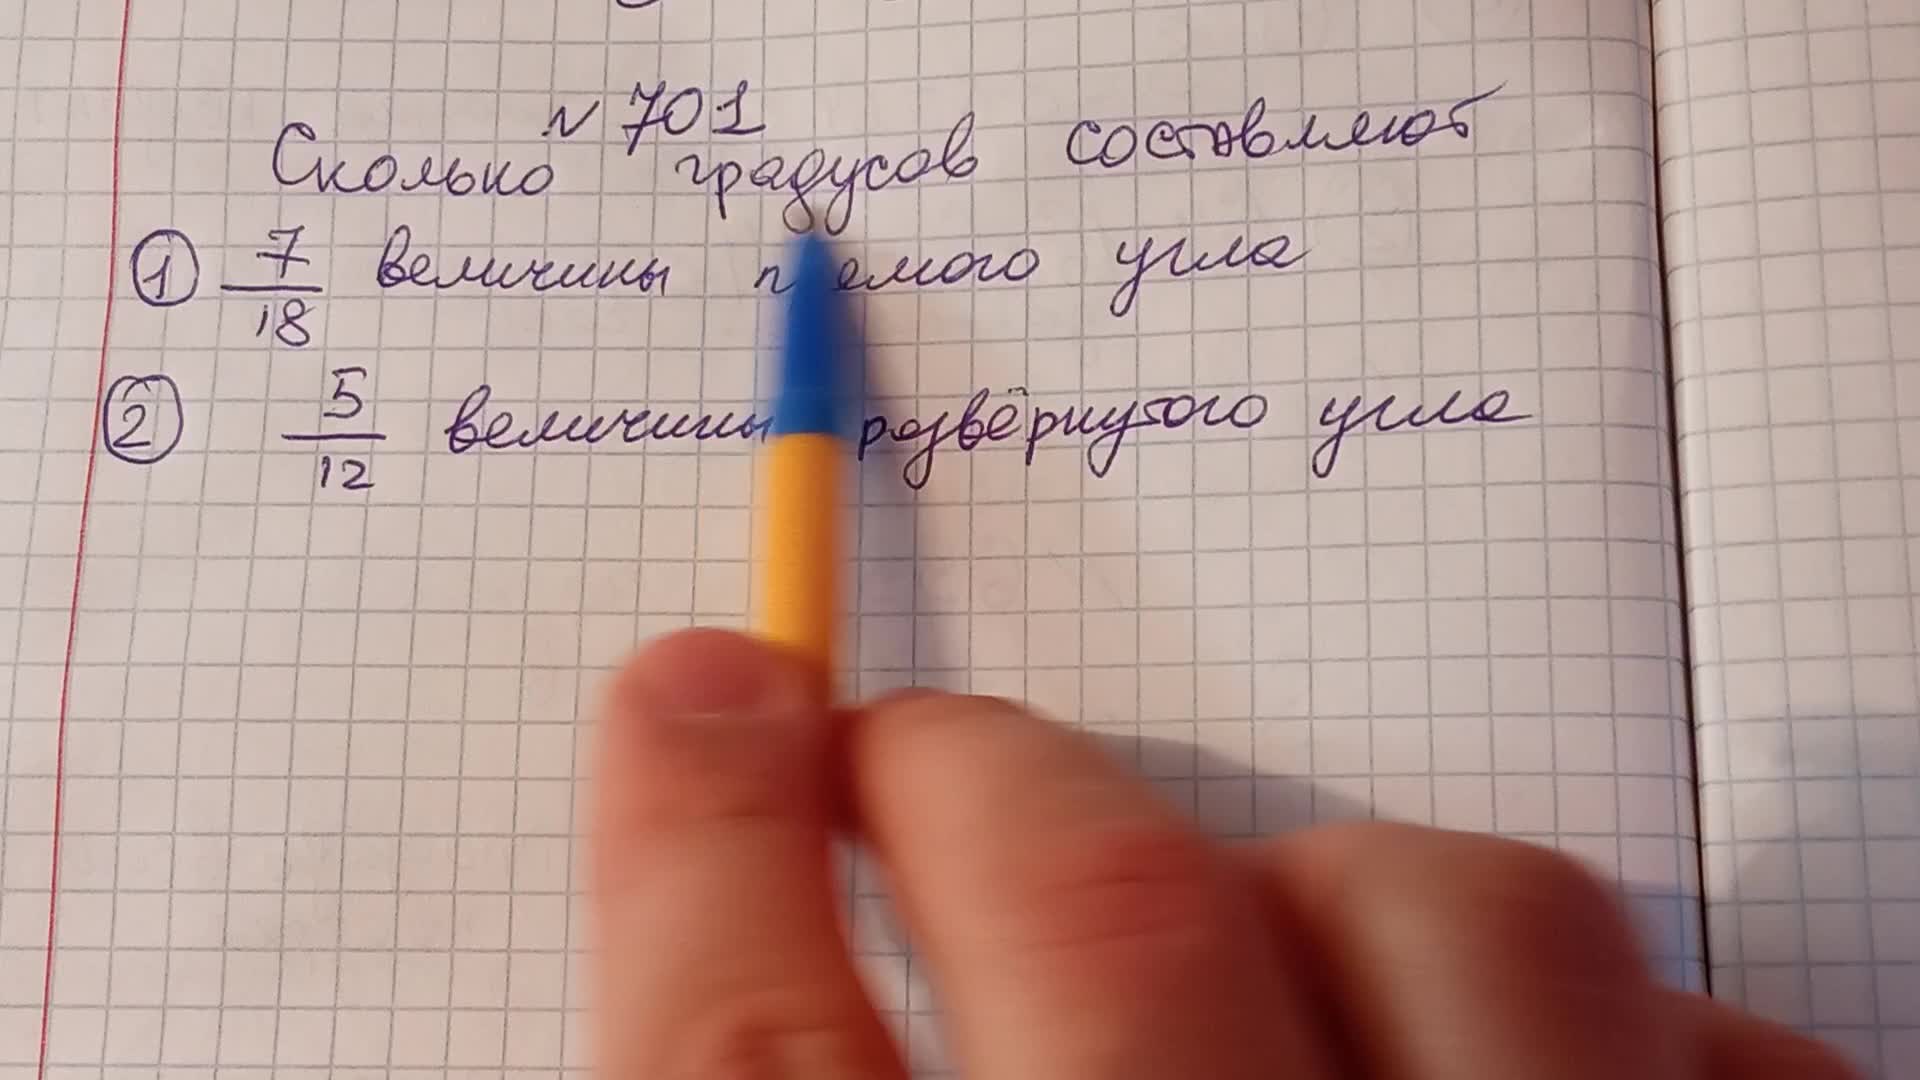 № 701
Сколько градусов составляют
① 7/18 величины угла
② 5/12 величины развёрнутого угла